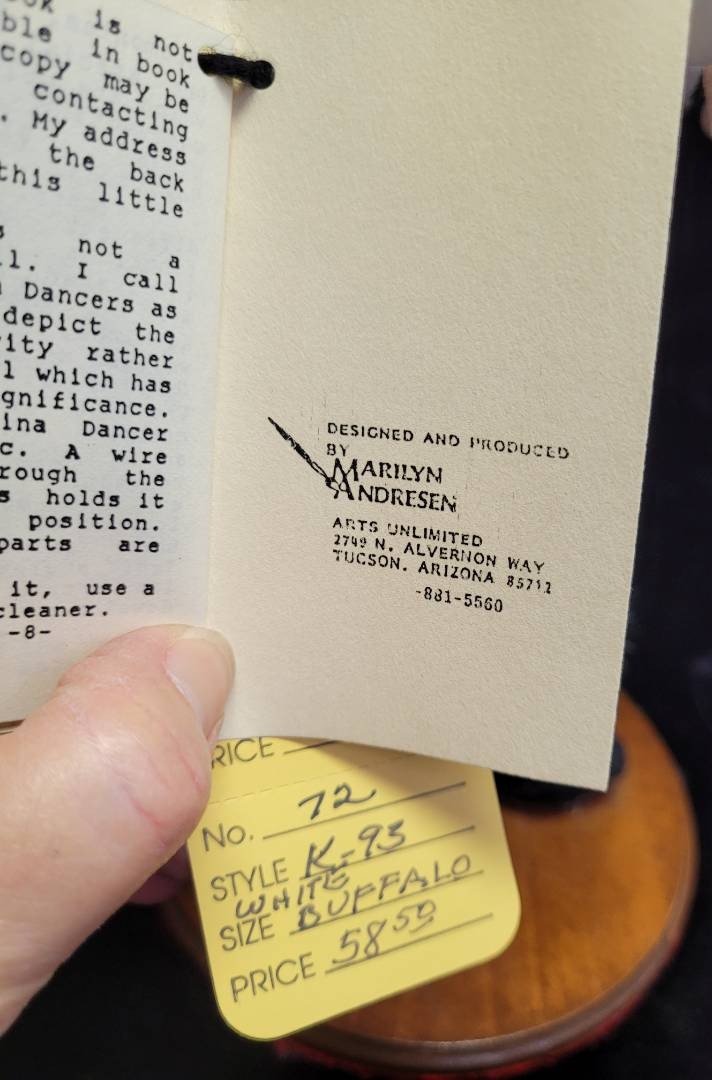 is not
ble in book
copy may be
contacting
. My address
the back
this little
not a
ll. I call
Dancers as
depict the
ity rather
l which has
gnificance.
ina Dancer
c. A wire
rough the
s holds it
position.
parts are
it, use a
cleaner.
-8-
DESIGNED AND PRODUCED
BY
MARILYN
ANDRESEN
ARTS UNLIMITED
2749 N. ALVERNON WAY
TUCSON, ARIZONA 85712
-881-5560
RICE
No. 72
STYLE K-93
WHITE
SIZE BUFFALO
PRICE 58 50